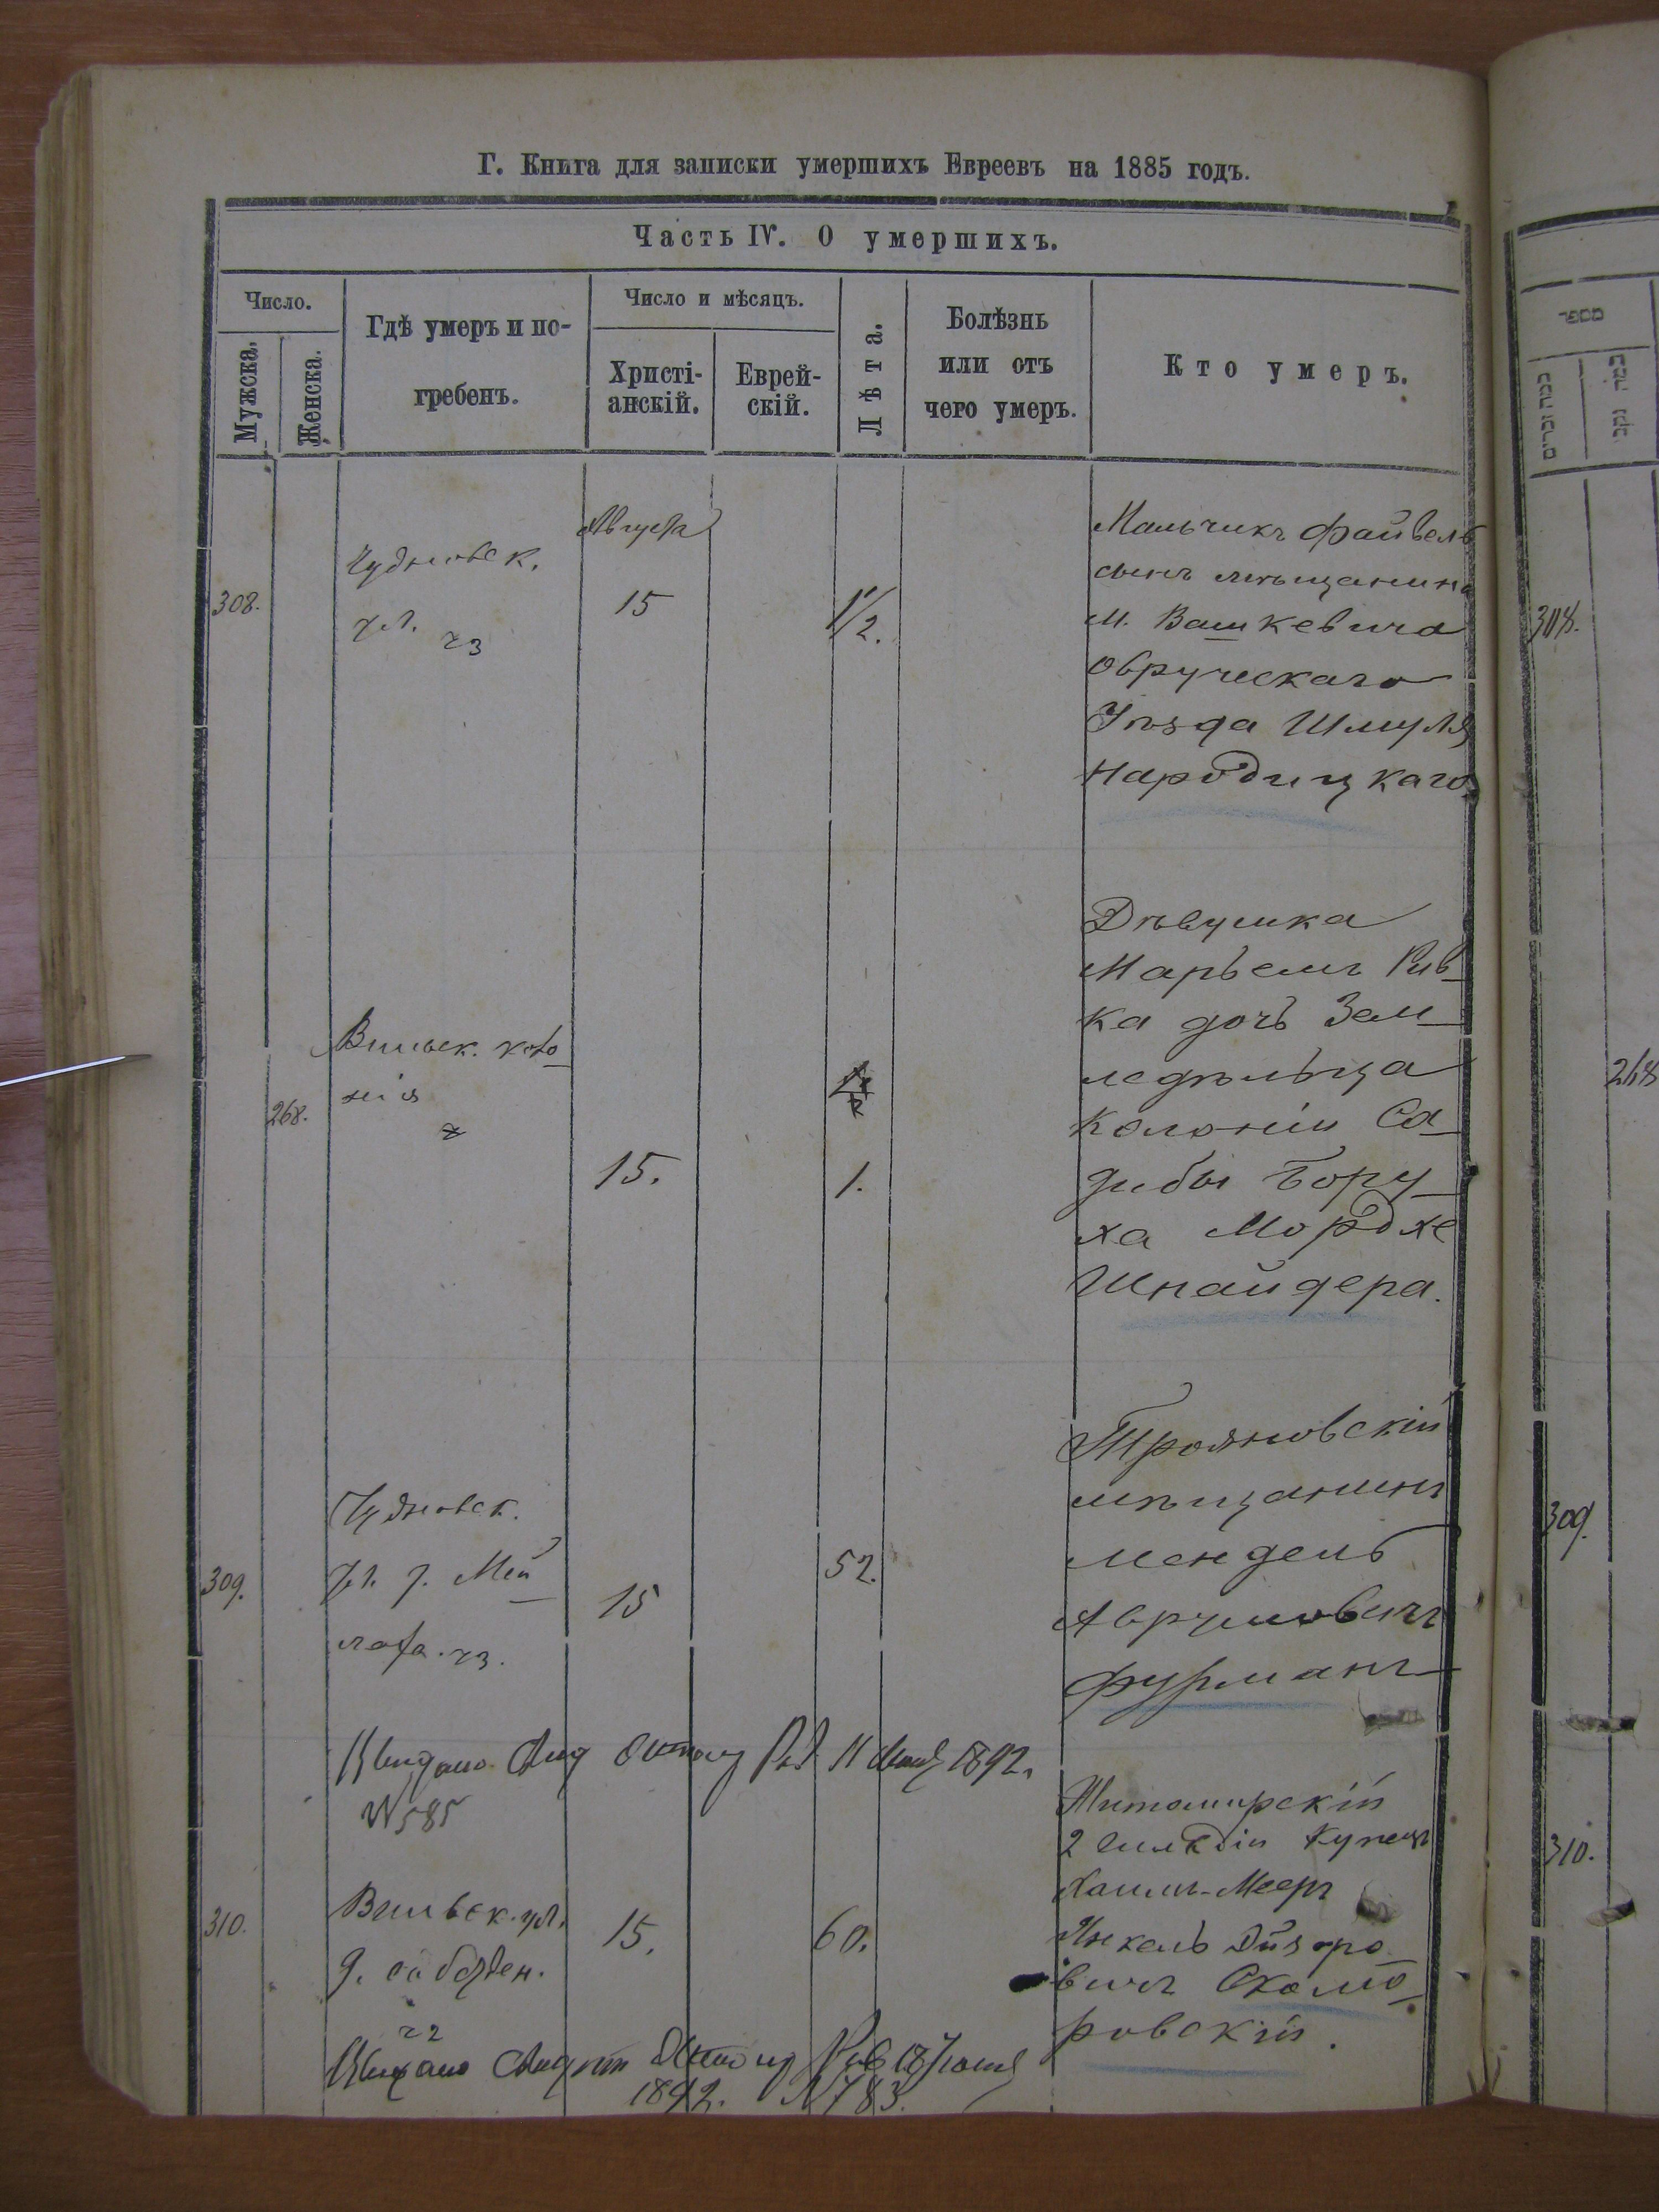 Г. Книга для записки умершихъ Евреевъ на 1885 годъ.
Часть IV. О умершихъ.
Число.
Мужска.
Женска.
Гдѣ умеръ и по-
гребенъ.
Число и мѣсяцъ.
Христі-
анскій.
Еврей-
скій.
Лѣта.
Болѣзнь
или отъ
чего умеръ.
Кто умеръ.
308.
Чудновск.
ул. ч3
Августа
15
1 1/2.
Мальчикъ Файвель
сынъ мѣщанина
м. Вашкевича
Овручскаго
Уѣзда Шмуля
Народицкаго
268.
Вильск. коло
нія
15.
1.
Дѣвушка
Марьемъ Рив
ка дочь Зем
ледѣльца
Колоніи Са
дыбы Бору
ха Мордхе
Шнайдера.
309.
Чудновск.
ул. ч3.
15
52.
Трояновскій
мѣщанинъ
Мендель
Аврумовичъ
Фурманъ
11 1892.
№585
310.
Вильск. ул.
д.
ч2
15.
60.
Житомирскій
2 гильдіи Купецъ
Хаимъ-Мееръ
Янкель
вичъ Скомо
ровскій.
18
1892. №783.
308.
268
309.
310.
מספר